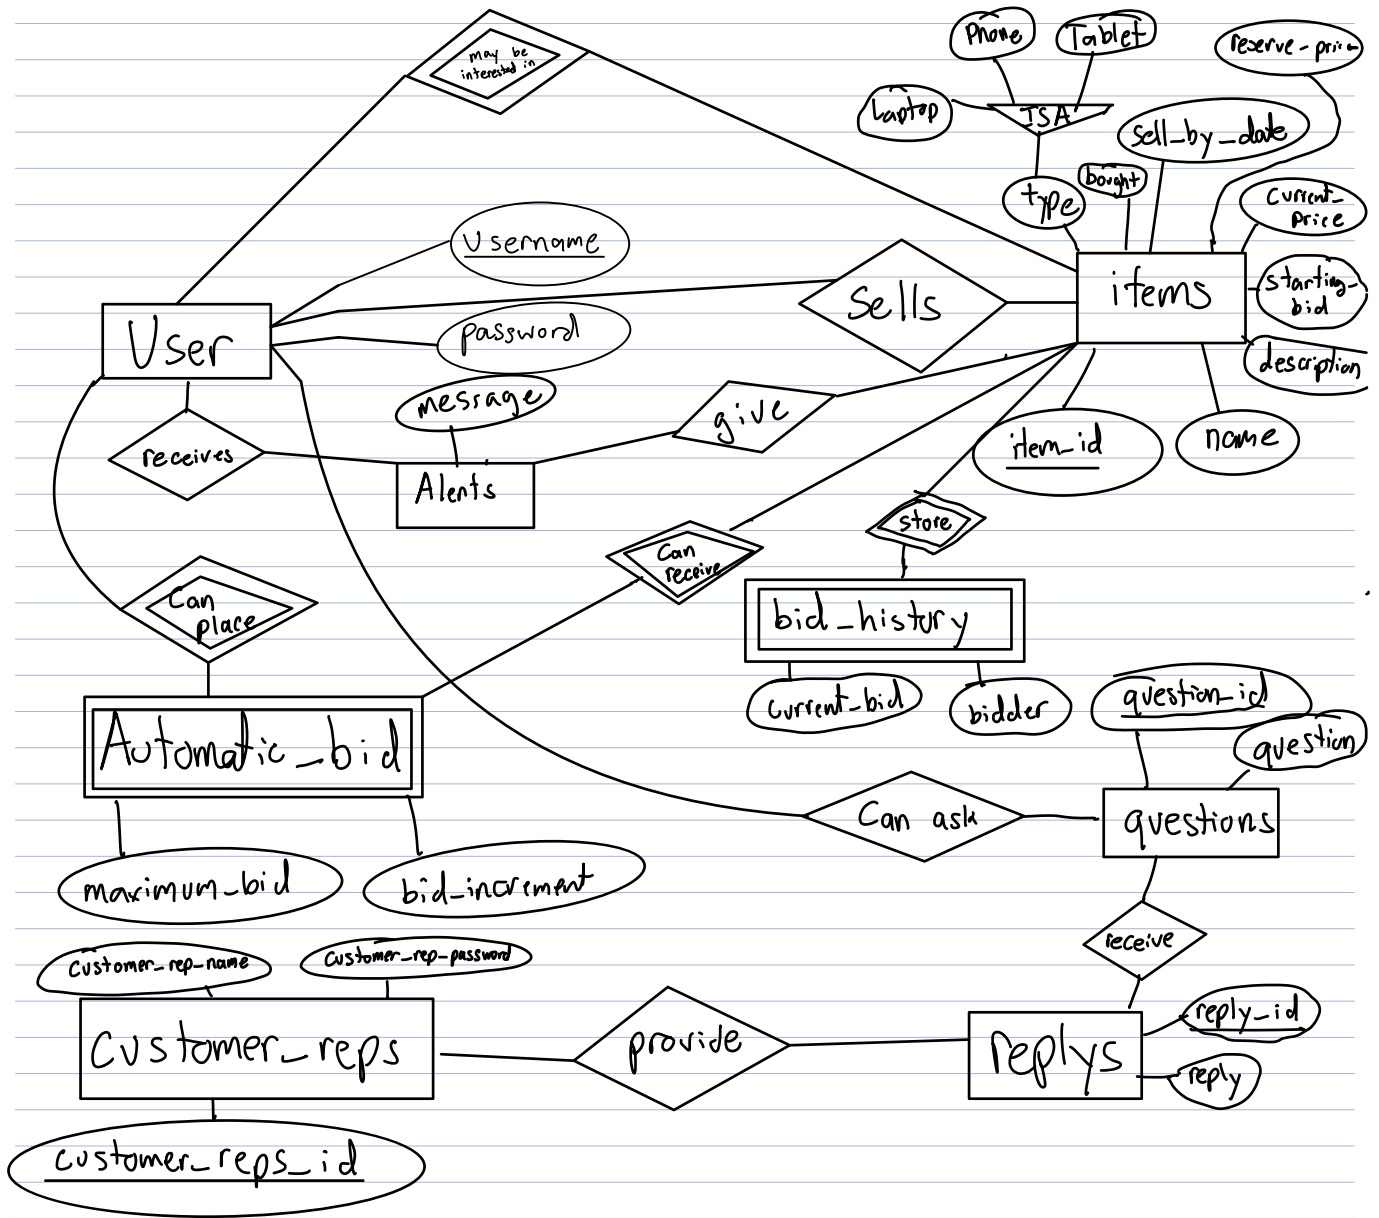 may be
interested in
Phone
Tablet
reserve-price
Laptop
ISA
sell_by_date
type
bought
current_
price
Username
Sells
items
starting_
bid
User
password
description
message
give
receives
item_id
name
Alerts
store
Can
receive
Can
place
bid_history
current_bid
bidder
question_id
question
Automatic_bid
Can ask
questions
maximum_bid
bid_increment
receive
customer_rep_name
customer_rep_password
customer_reps
provide
replys
reply_id
reply
customer_reps_id